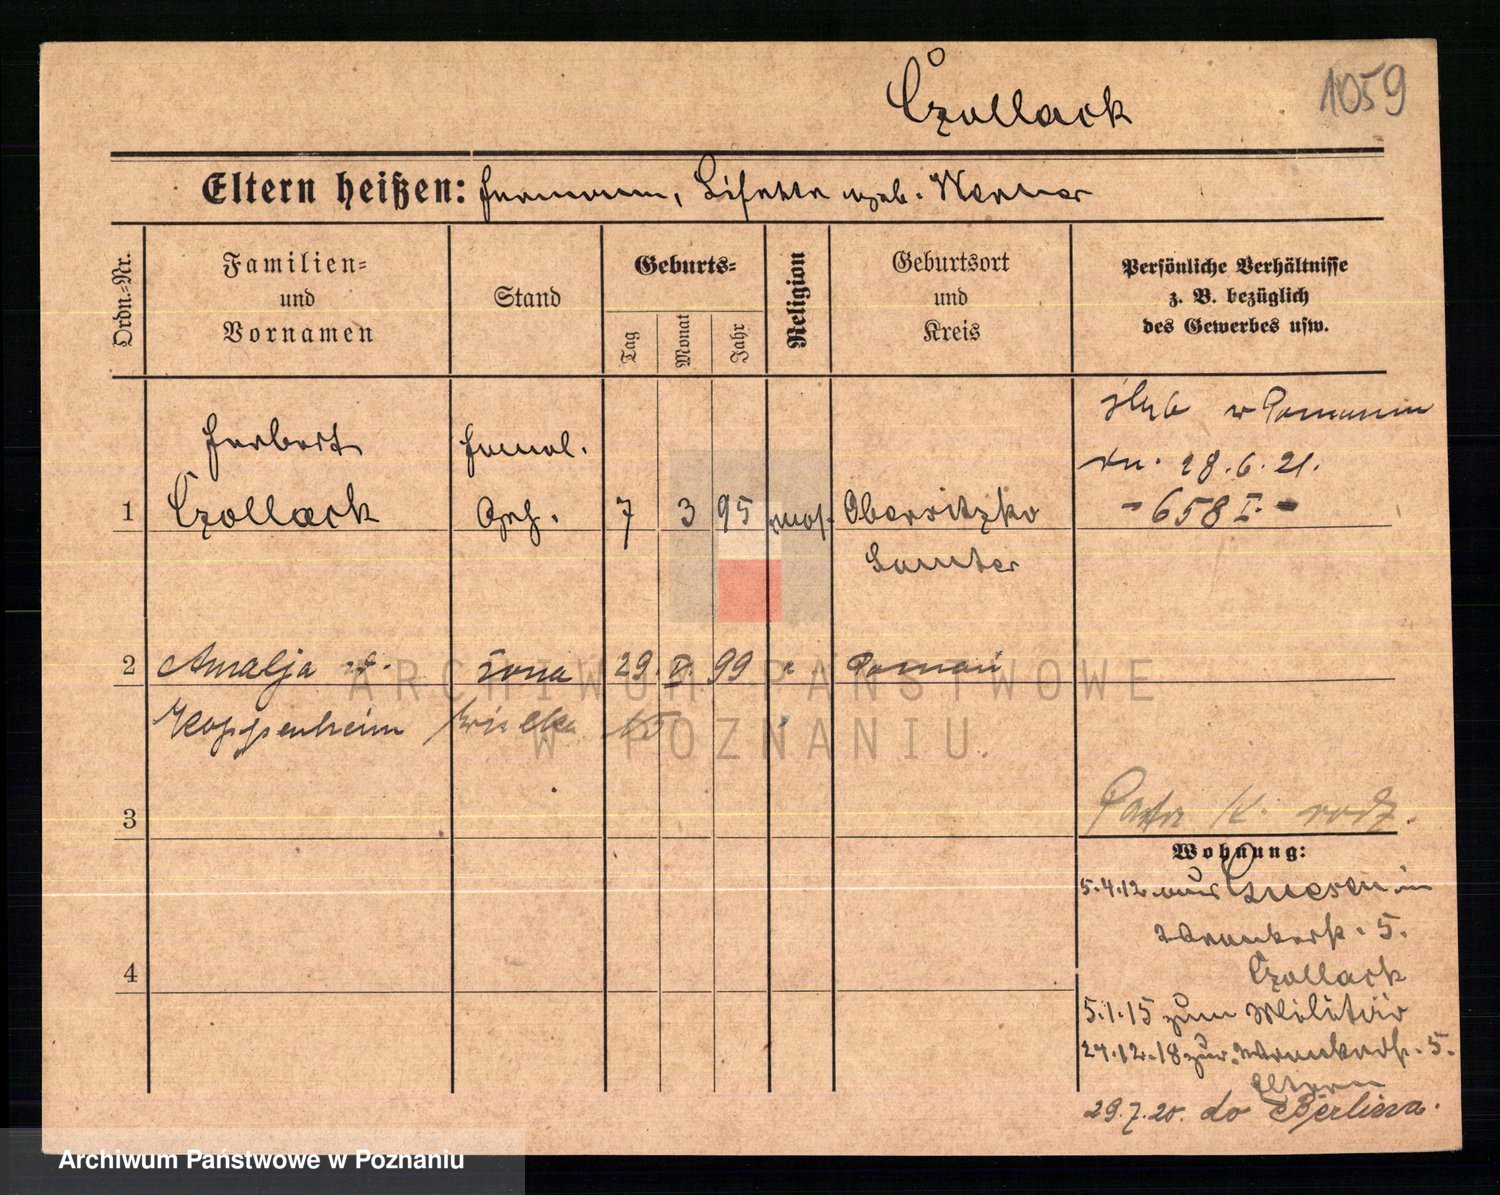 1059
Czollack
Eltern heißen: Hermann, Lisette geb. Werner
Ordn.-Nr.
Familien-
und
Vornamen
Stand
Geburts-
Tag
Monat
Jahr
Religion
Geburtsort
und
Kreis
Persönliche Verhältnisse
z. B. bezüglich
des Gewerbes usw.
Herbert
Czollack
Handl.
Geh.
1
7
3
95
mos.
Obersitzko
Samter
ślub w Poznaniu
dn. 28.6.21.
- 658 I. -
2
Amalja
żona
29.
99
"
Poznań
Koppenheim
3
4
Wohnung:
5.4.12. aus Gnesen in
5.
Czollack
5.1.15 zum Militär
24.12.18 zur.
5.
Eltern
29.7.20. do Berlina.
ARCHIWUM PAŃSTWOWE
W POZNANIU
Archiwum Państwowe w Poznaniu